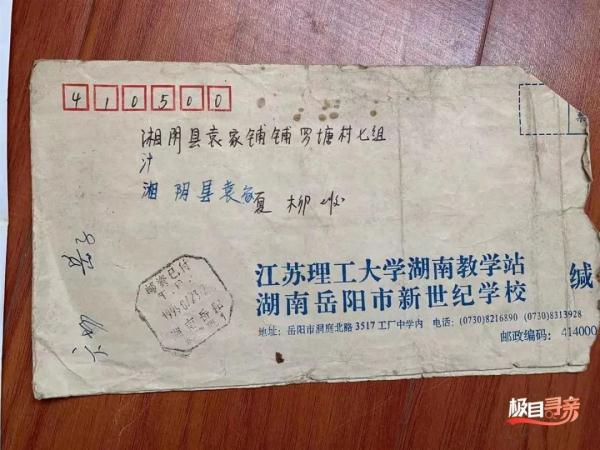 410500
湘阴县袁家铺铺罗塘村七组
湘阴县袁家夏 柳 收
邮资已付
江苏理工大学湖南教学站
湖南岳阳市新世纪学校
缄
地址: 岳阳市洞庭北路3517工厂中学内 电话: (0730)8216890 (0730)8313928
邮政编码: 414000
极目寻亲